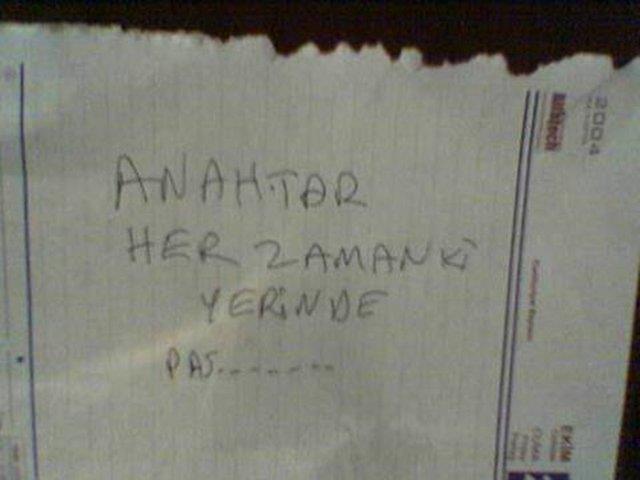 ANAHTAR
HER ZAMANKİ
YERİNDE
PAS.......
2004
EKİM
CUMA